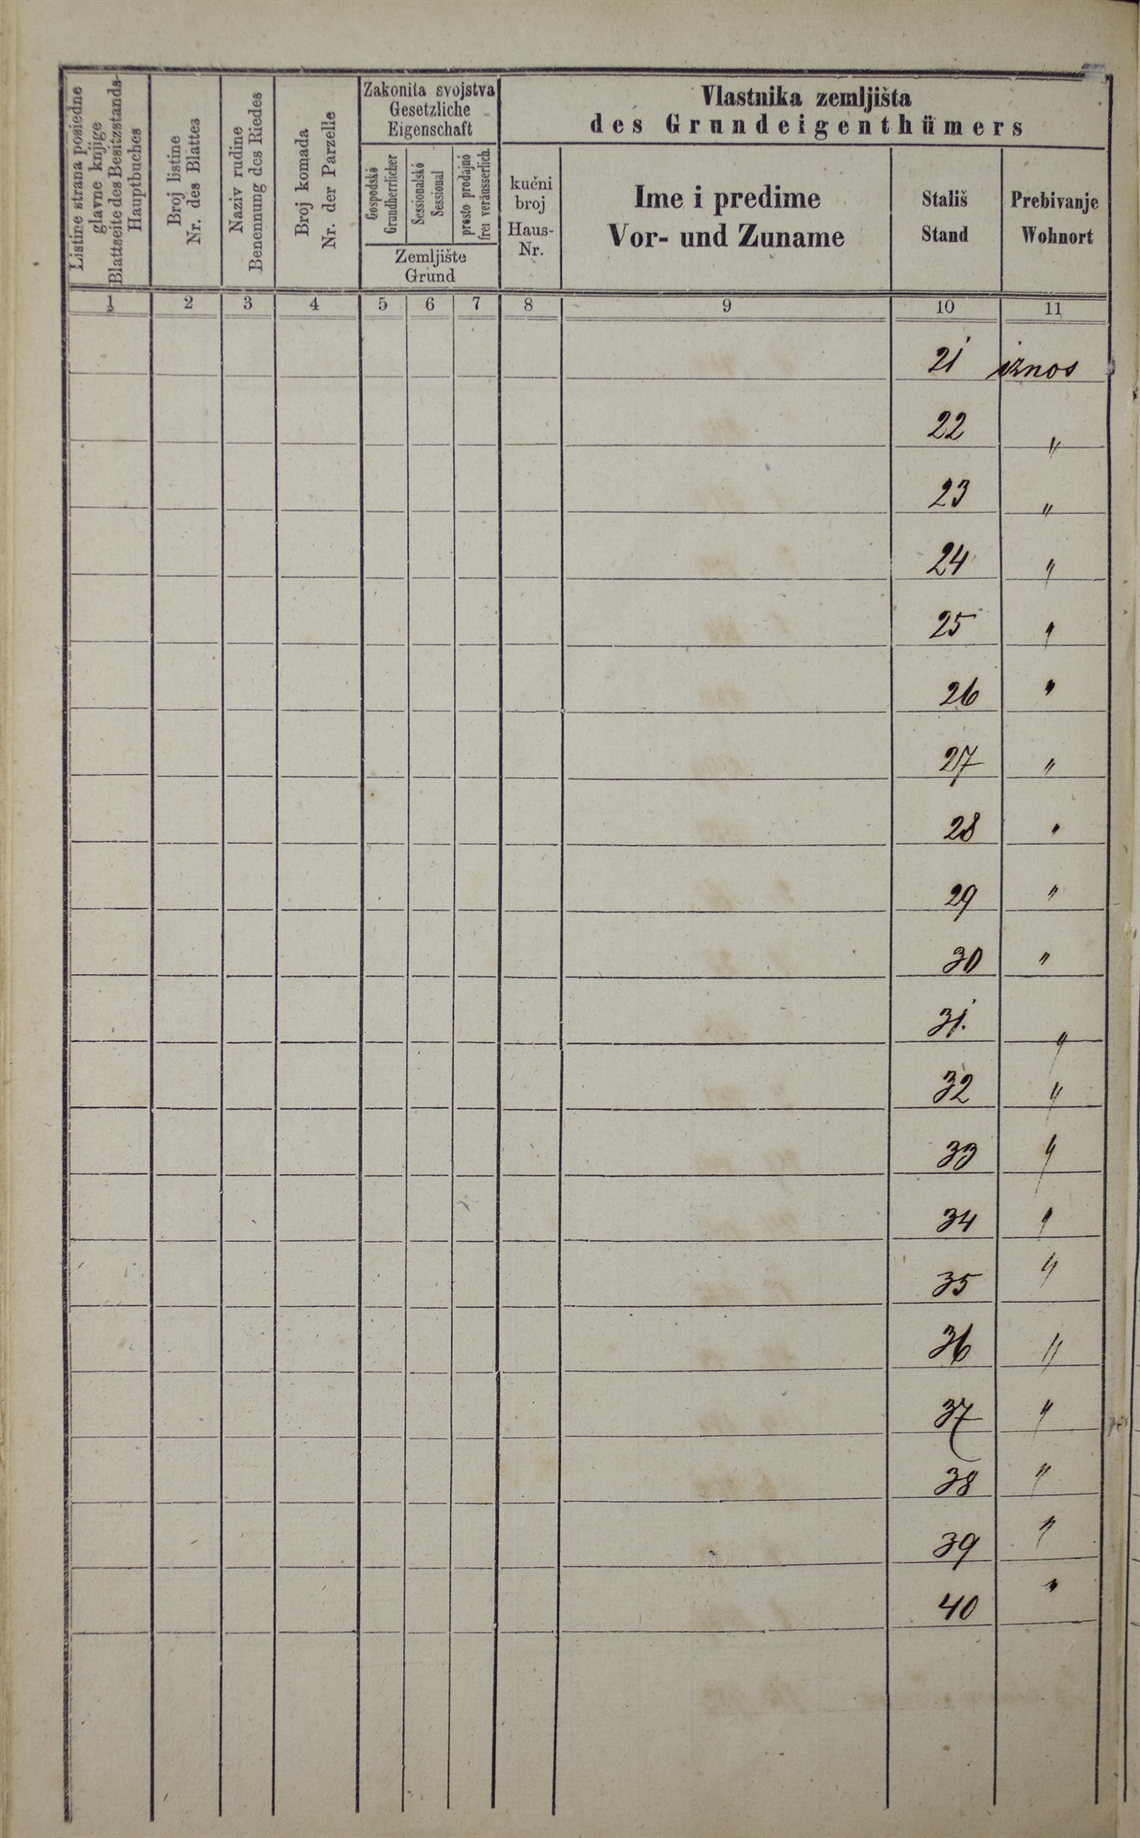 Listine strana posiedne
glavne knjige
Blattseite des Besitzstands-
Hauptbuches
Broj listine
Nr. des Blattes
Naziv rudine
Benennung des Riedes
Broj komada
Nr. der Parzelle
Zakonita svojstva
Gesetzliche
Eigenschaft
Gospodskó
Grundherrlicher
Sessionalskó
Sessional
prosto prodajnó
frei veräusserlich.
Zemljište
Grund
Vlastnika zemljišta
des Grundeigenthümers
kućni
broj
Haus-
Nr.
Ime i predime
Vor- und Zuname
Stališ
Stand
Prebivanje
Wohnort
1 2 3 4 5 6 7 8 9 10 11
21 iznos
22 "
23 "
24 "
25 "
26 "
27 "
28 "
29 "
30 "
31. "
32 "
33 "
34 "
35 "
36 "
37 "
38 "
39 "
40 "